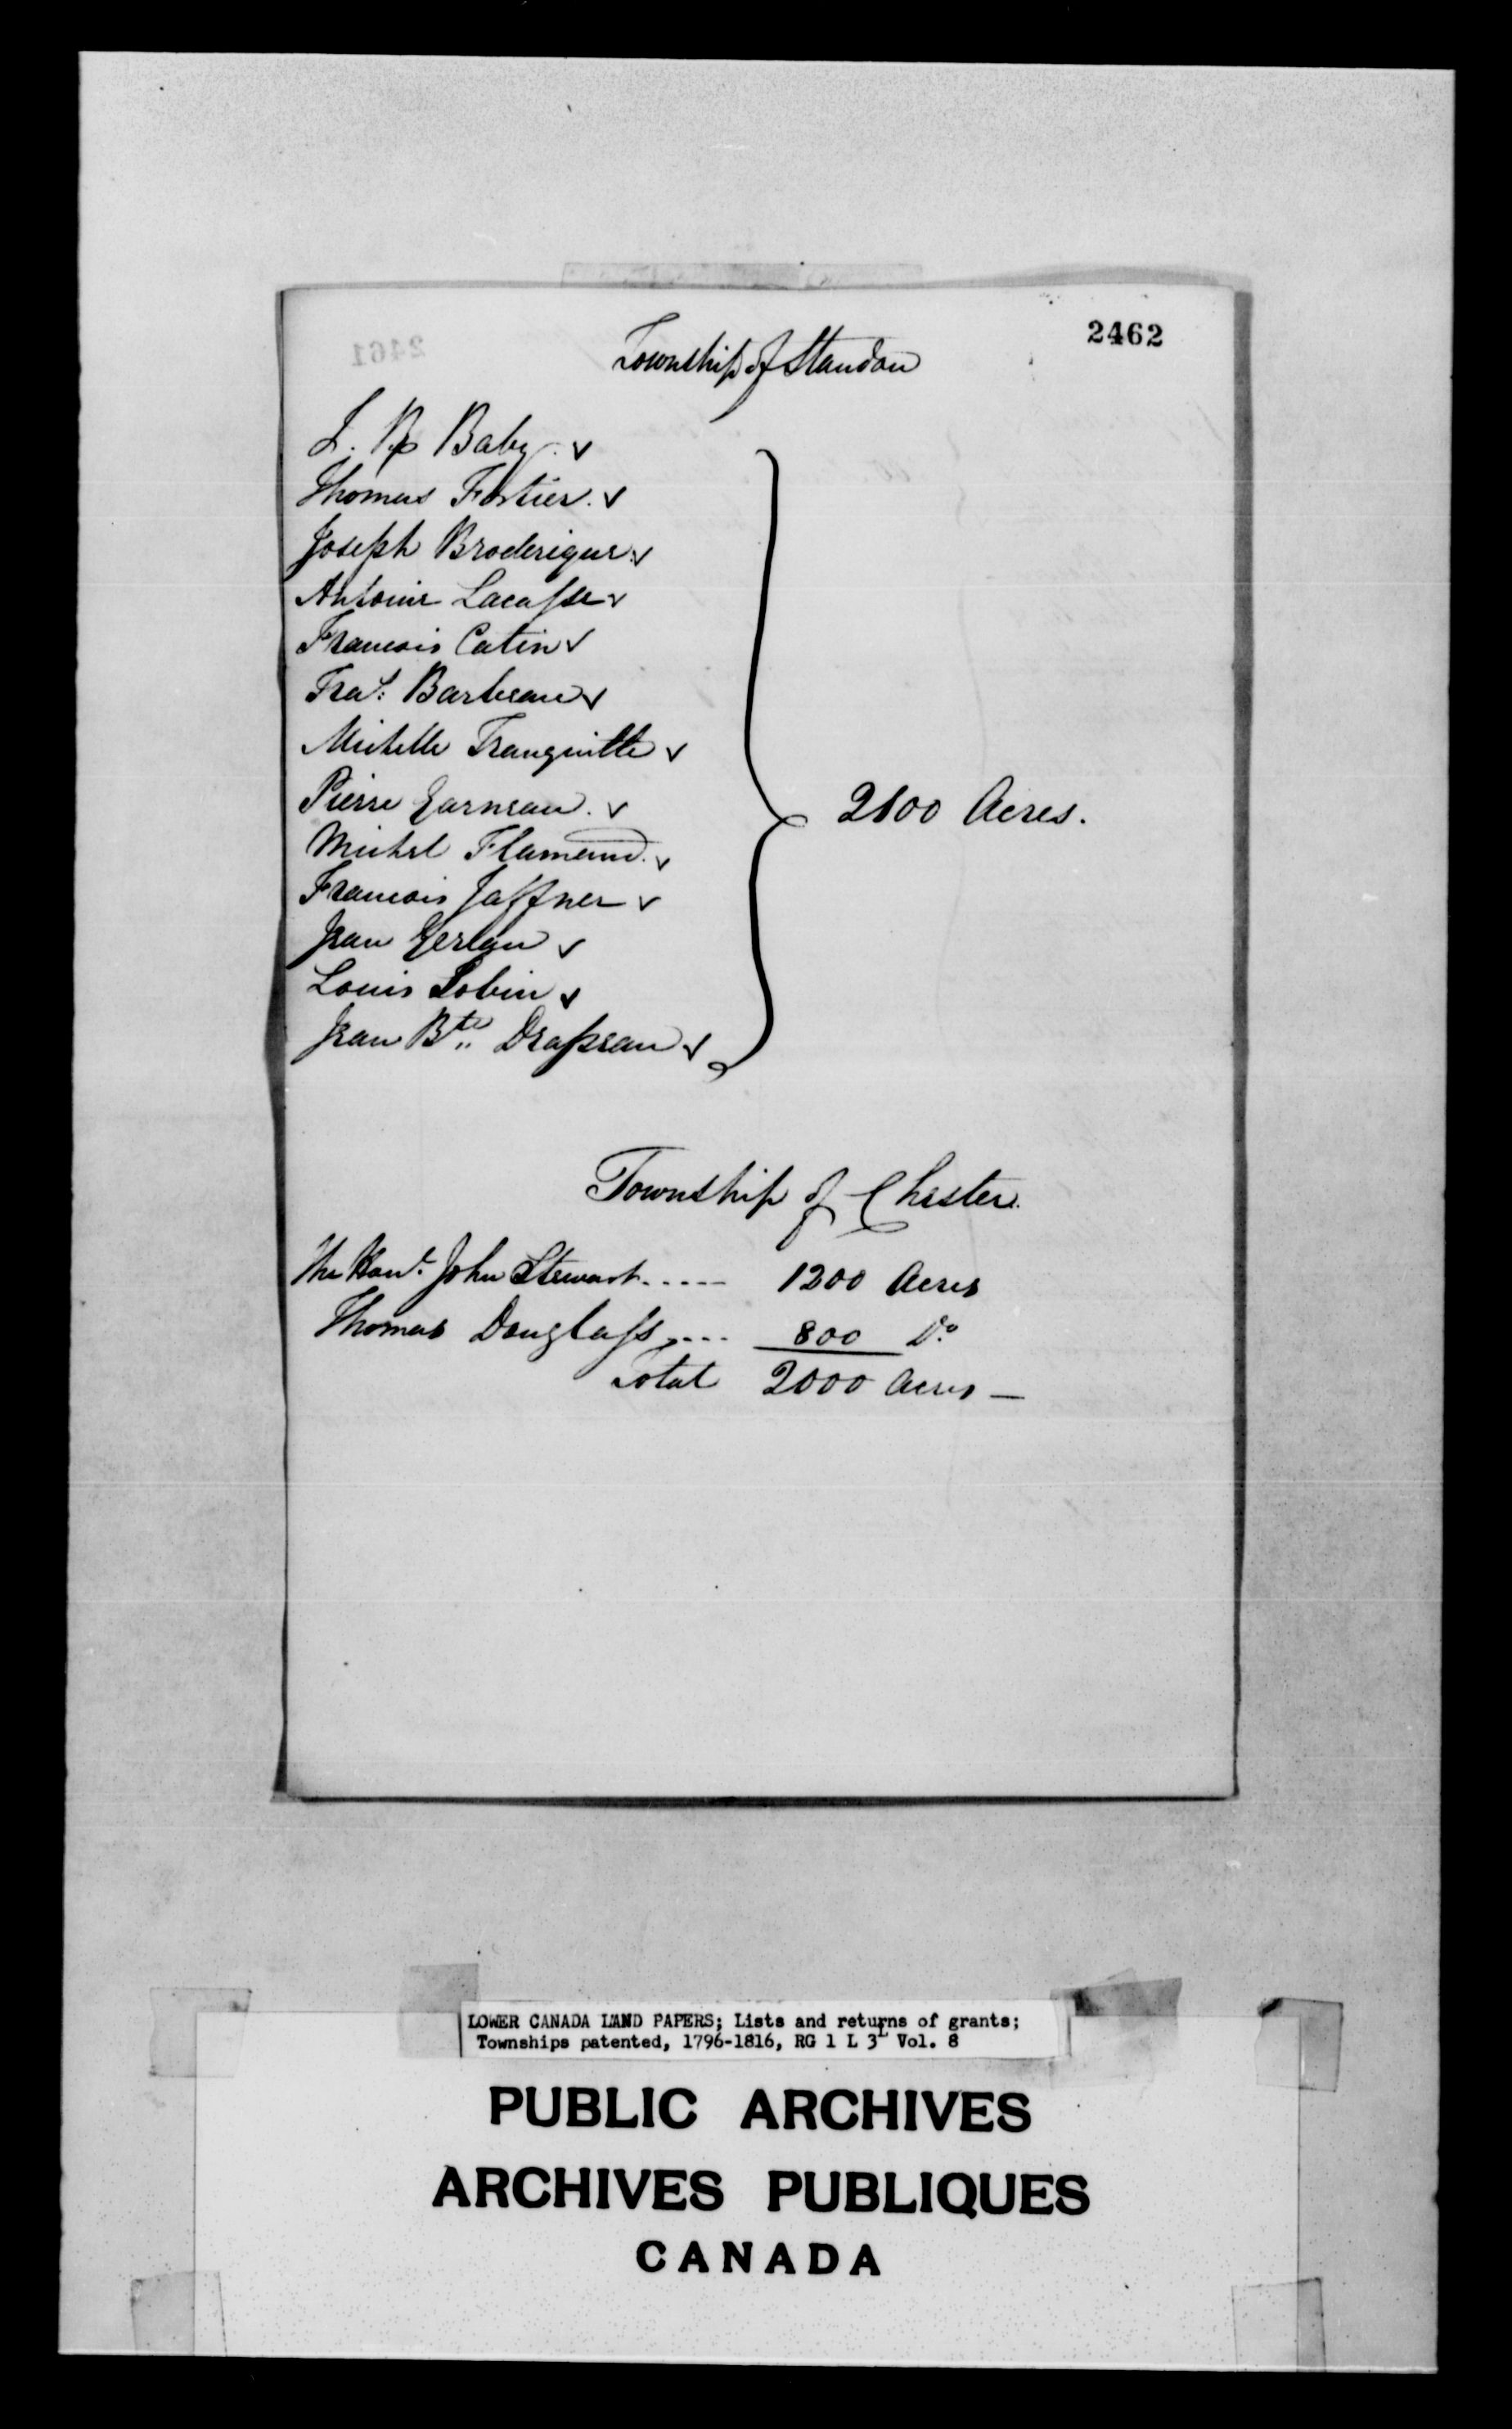 2462
Township of Standon
L. Bp Baby. v
Thomas Fortier. v
Joseph Broderique. v
Antoine Lacasse v
Francois Catin v
Fra.s Barbeau v
Michelle Tranquille v
Pierre Garneau. v
Michel Flamand. v
Francois Gaffner v
Jean Gerlau v
Louis Lobin v
Jean Bte. Drapeau v
2800 Acres.
Township of Chester.
The Hon.l John Stewart ..... 1200 Acres
Thomas Douglass .... 800 Do
Total 2000 Acres —
LOWER CANADA LAND PAPERS; Lists and returns of grants;
Townships patented, 1796-1816, RG 1 L 3L Vol. 8
PUBLIC ARCHIVES
ARCHIVES PUBLIQUES
CANADA